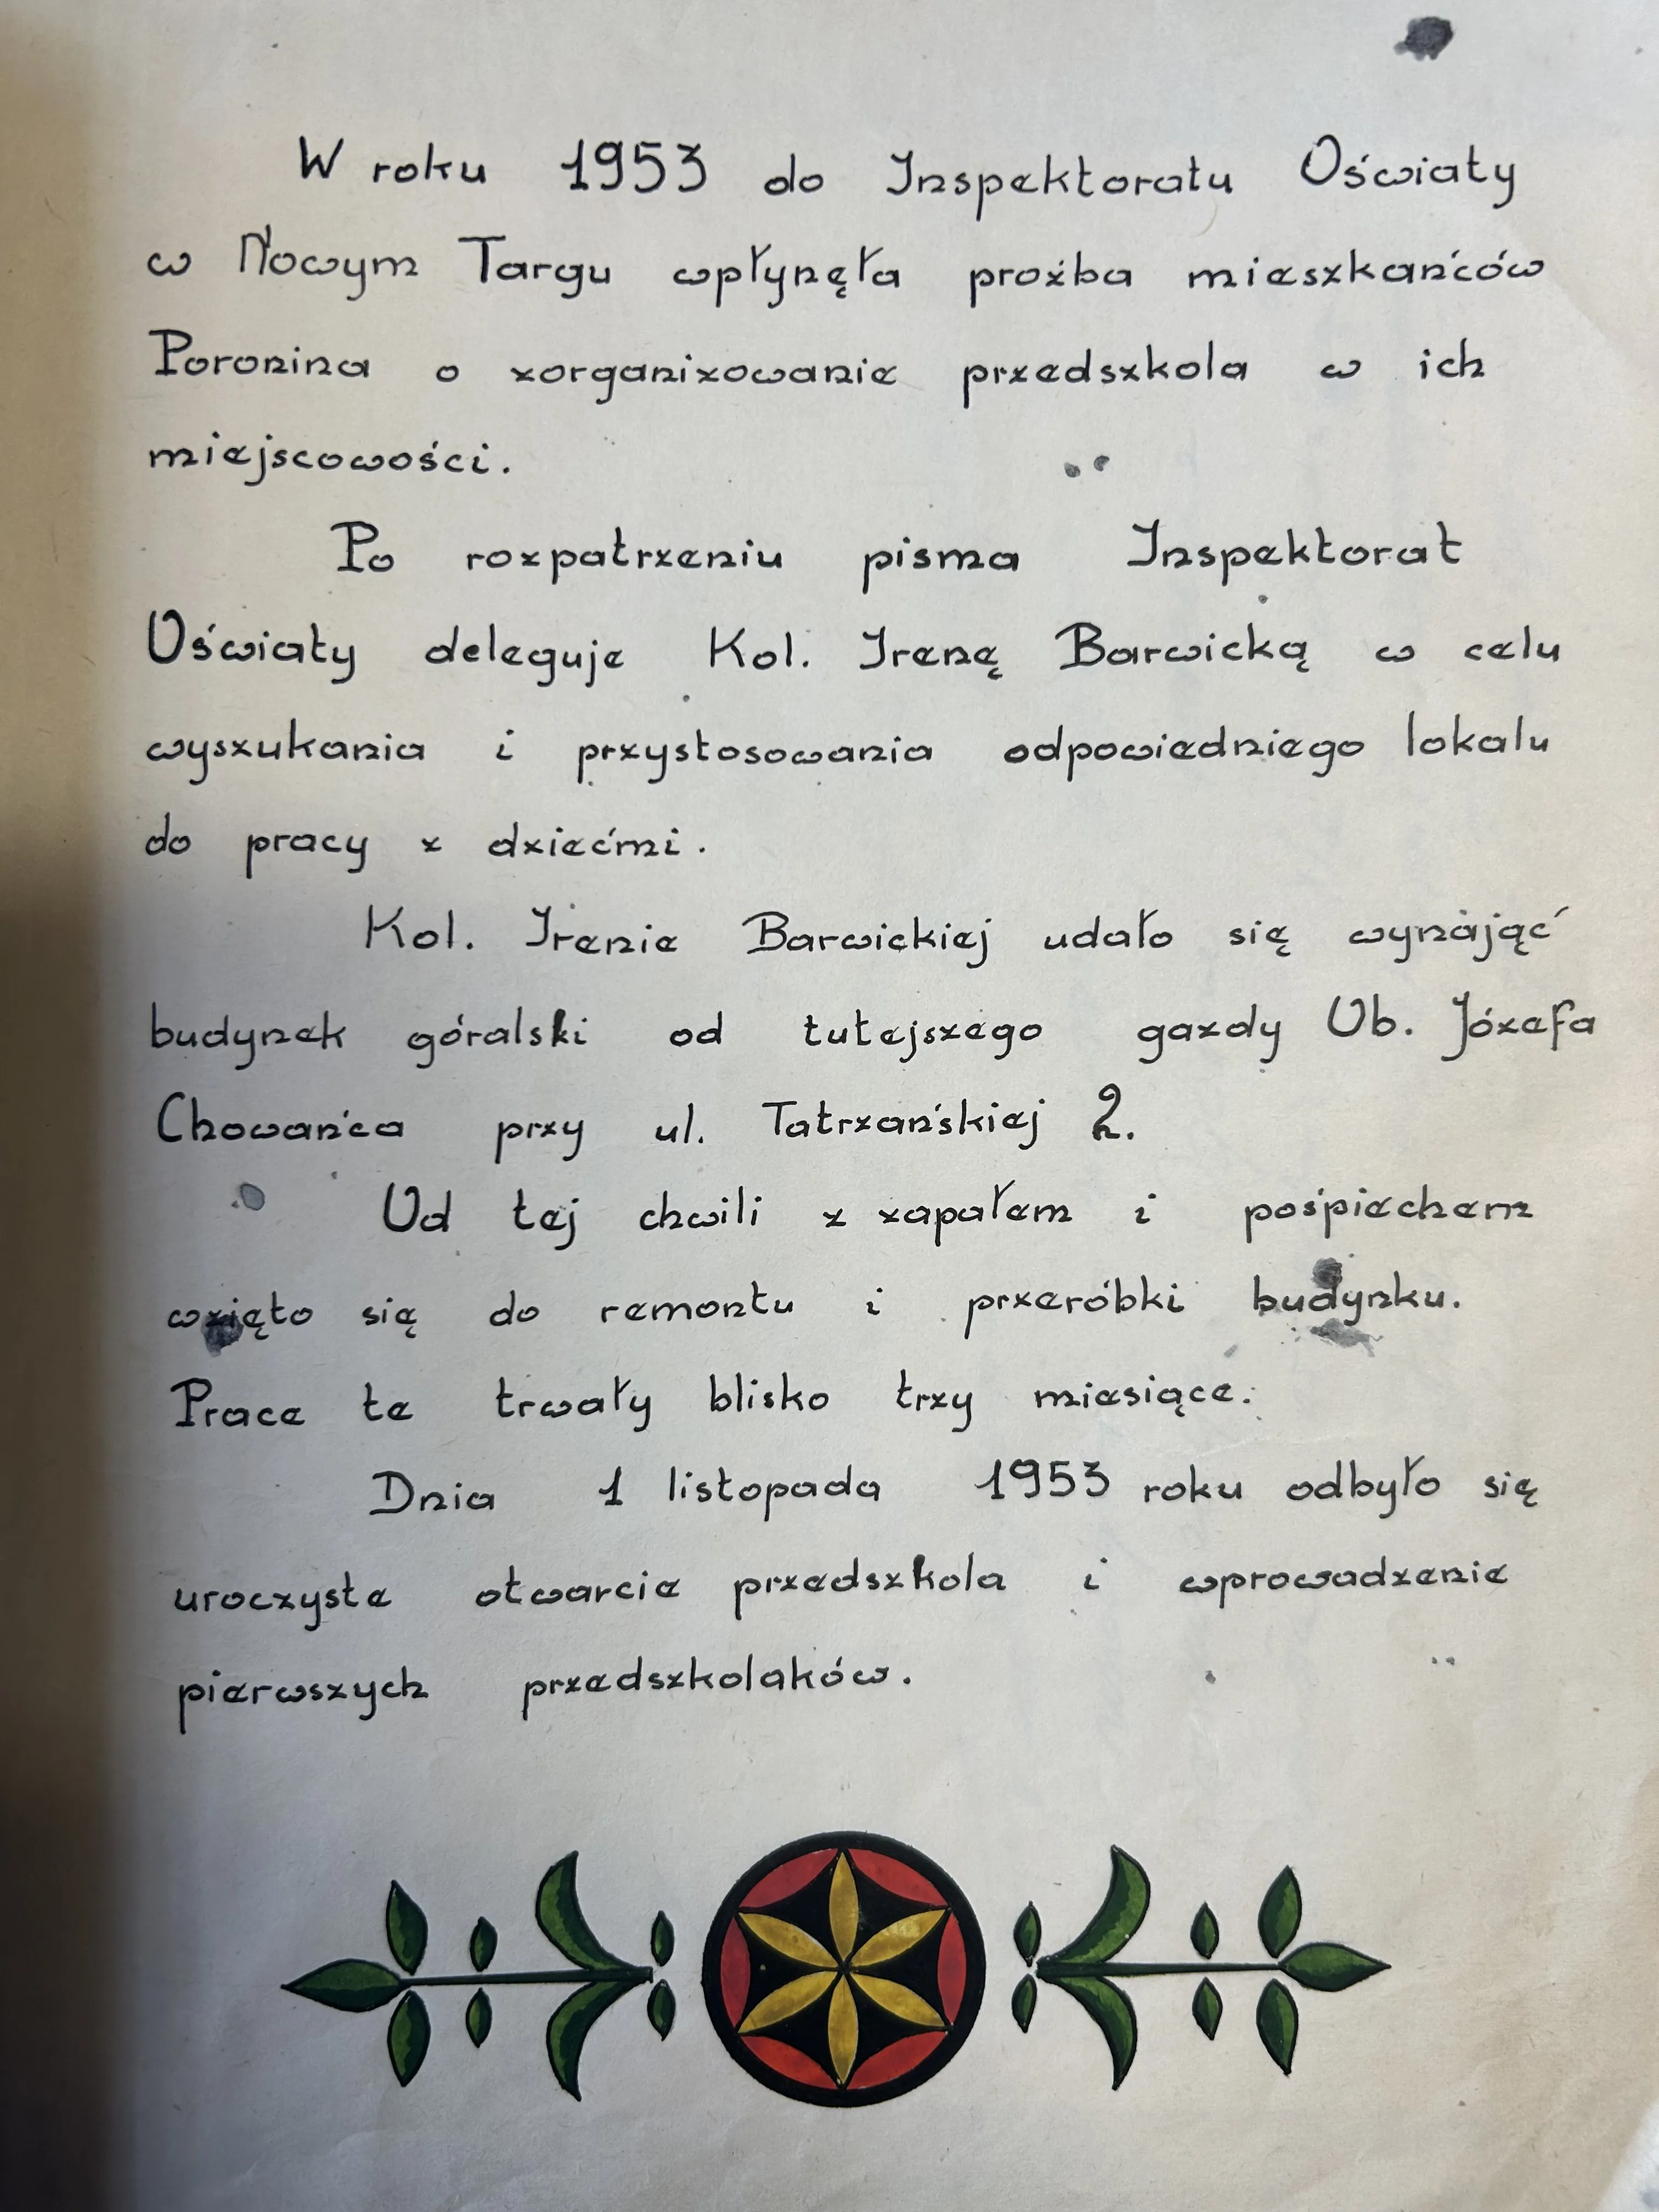 W roku 1953 do Inspektoratu Oświaty
w Nowym Targu wpłynęła proźba mieszkańców
Poronina o zorganizowanie przedszkola w ich
miejscowości.
Po rozpatrzeniu pisma Inspektorat
Oświaty deleguje Kol. Irenę Barwicką w celu
wyszukania i przystosowania odpowiedniego lokalu
do pracy z dziećmi.
Kol. Irenie Barwickiej udało się wynająć
budynek góralski od tutejszego gazdy Ob. Józefa
Chowańca przy ul. Tatrzańskiej 2.
Od tej chwili z zapałem i pośpiechem
wzięto się do remontu i przeróbki budynku.
Prace te trwały blisko trzy miesiące.
Dnia 1 listopada 1953 roku odbyło się
uroczyste otwarcie przedszkola i wprowadzenie
pierwszych przedszkolaków.